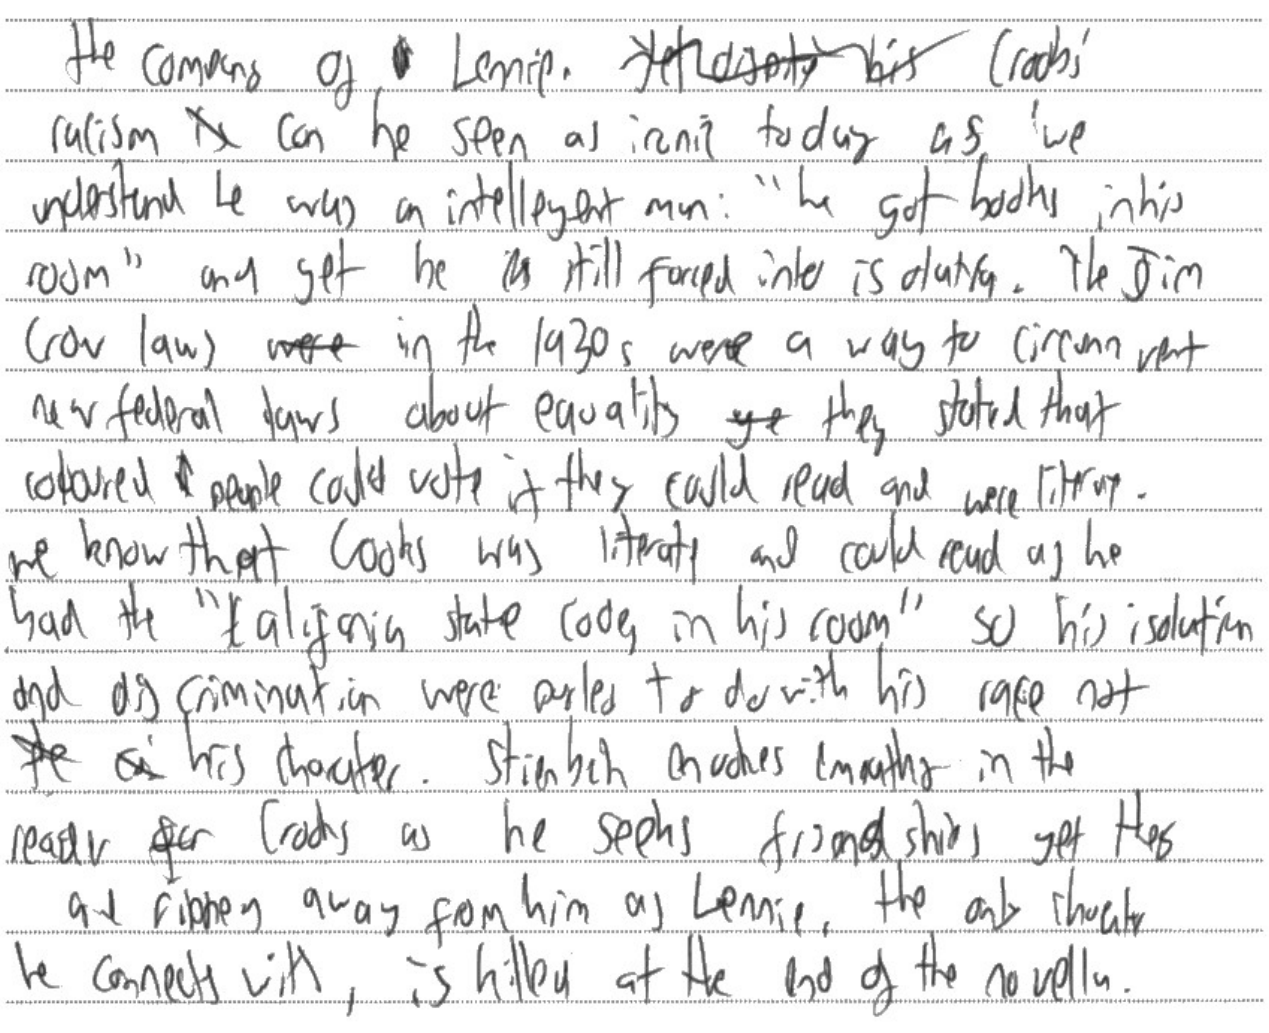 the company of Lennie. Crooks'
racism can be seen as ironic today as we
understand he was an intellegent man: "he got books in his
room" and yet he is still forced into isolation. The Jim
Crow laws in the 1930s were a way to circumnvent
new federal laws about equality they stated that
coloured people could vote if they could read and were literate.
we know that Cooks was literate and could read as he
had the "California state code, in his room" so his isolation
and discrimination were to do with his race not
his charater. Stienbek evokes empathy in the
reader for Crooks as he seeks friendships yet they
are ripped away from him as Lennie, the only charater
he connects with, is killed at the end of the novella.